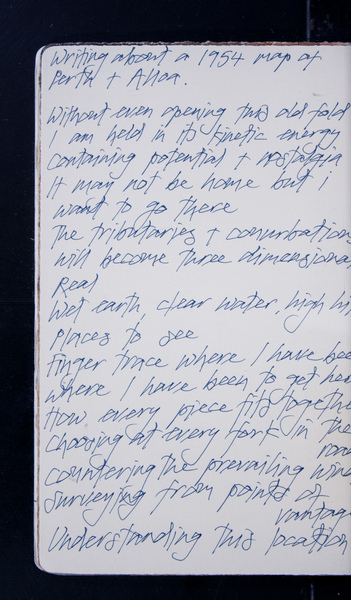 Writing about a 1954 map of
Perth + Alloa.
Without even opening this old fold
I am held in its kinetic energy
containing potential + nostalgia
It may not be home but i
want to go there
The tributaries + conurbations
will become three dimensional
Real
Wet earth, clear water, high hi
Places to see
Finger trace where I have bee
where I have been to get here
How every piece fits togethe
Choosing at every fork in the
road
countering the prevailing wind
surveying from points of
vantage
Understanding this location